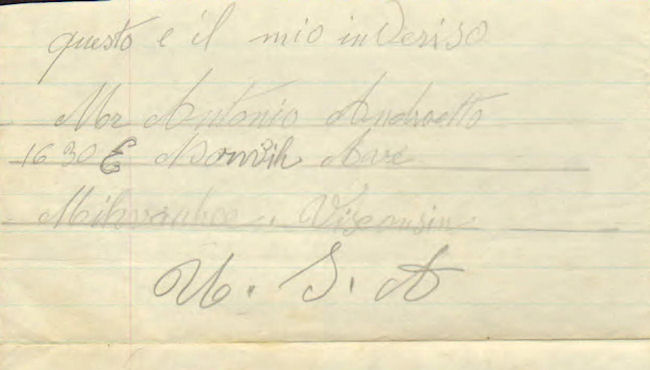 questo e il mio inderiso
Mr Antonio Androetto
1630 E Norwih Ave
Milwauhee. Visconsin
U. S. A